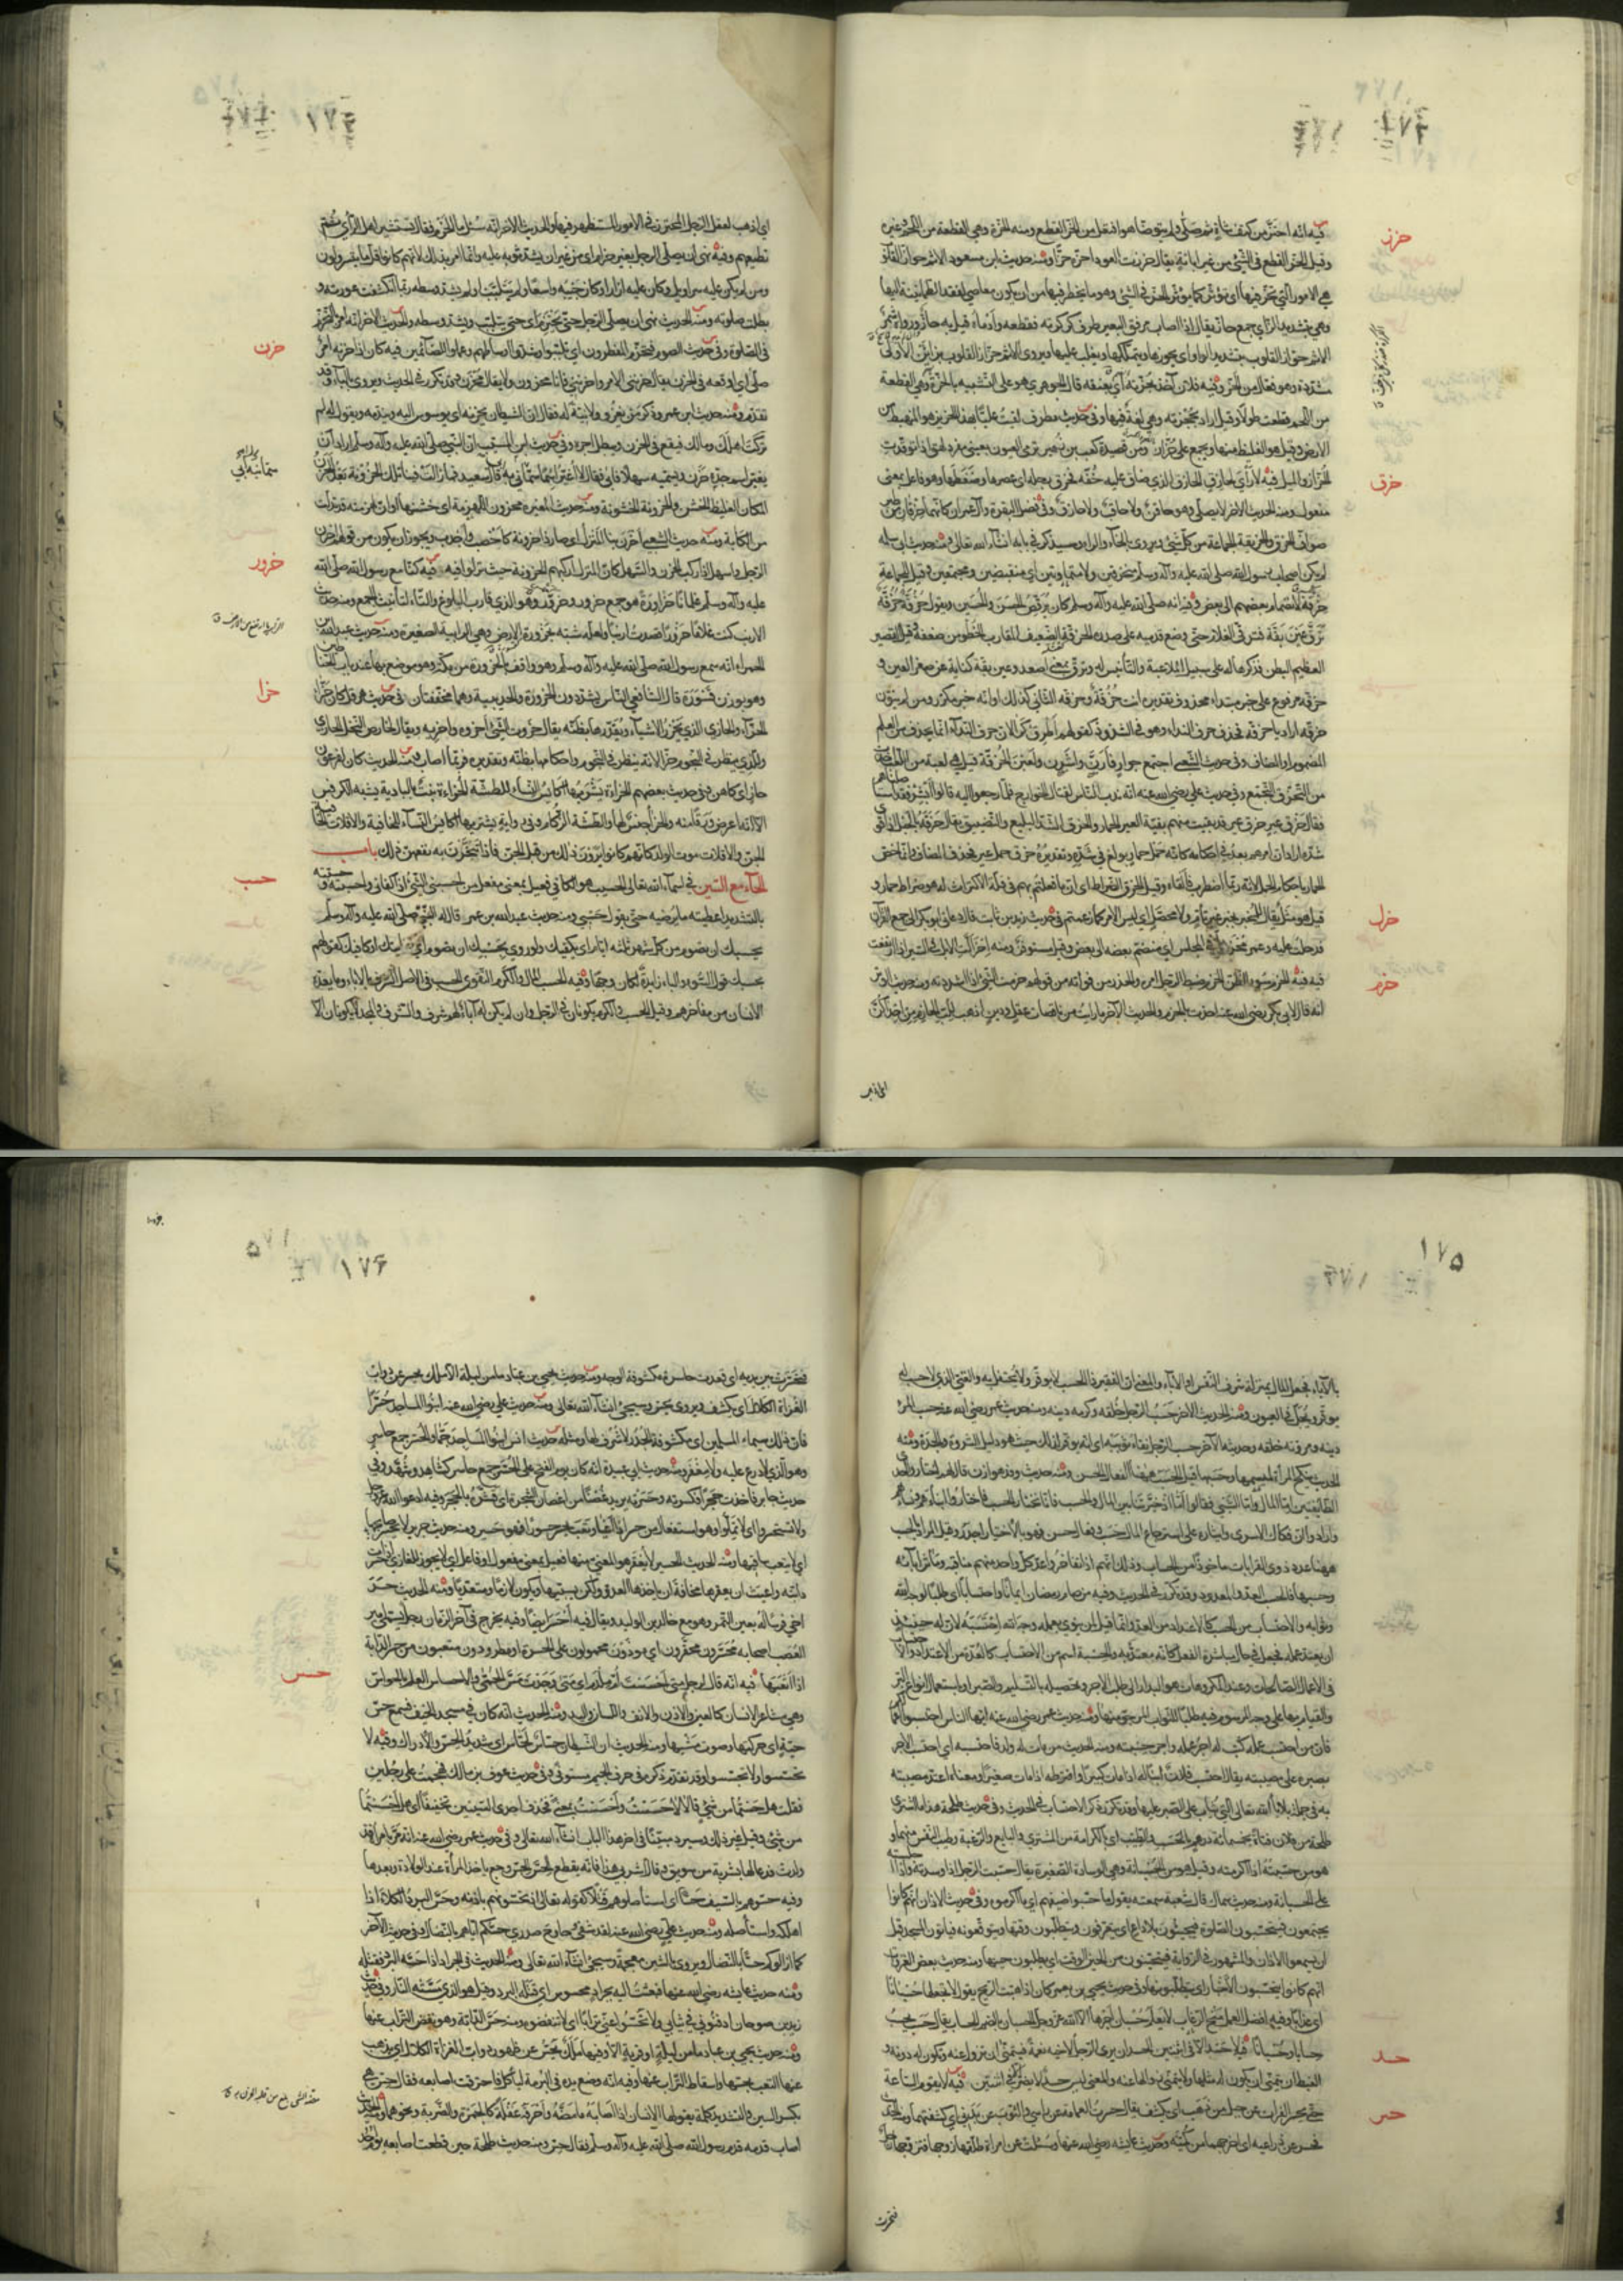 حزز
فيه انه احتز من كتف شاة ثم صلى ولم يتوضأ هو افتعل من الحز القطع ومنه الحزة وهي القطعة من اللحم وغيره
وقيل الحز القطع في الشيء من غير ابانة يقال حززت العود احزه حزا ومنه حديث ابن مسعود الاثم حواز القلوب
هي الامور التي تحز فيها اي تؤثر كما يؤثر الحز في الشيء وهو ما يخطر فيها من ان يكون معاصي لفقد الطمانينة اليها
وهي بتشديد الزاي جمع حاز يقال اذا اصاب مرفق البعير طرف كركرته فقطعه وادماه قيل به حاز
الاثم حواز القلوب بتشديد الواو اي يحوزها ويتملكها ويغلب عليها ويروى الاثم حزاز القلوب بزايين الاولى
مشددة وهو فعال من الحز وفيه فلان آخذ بحزته اي بعنقه قال الجوهري هو على التشبيه بالحزة وهي القطعة
من اللحم قطعت طولا وقيل اراد بحجزته وهي لغة فيها وفي حديث مطرف لقيت عليا بهذا الحزيز هو المنهبط من
الارض وقيل هو الغليظ منها ويجمع على حزان ومن قصيدة كعب بن زهير ترمي الغيوب بعيني مفرد لهق اذا توقدت
حزق
الحزاز والميل فيه لا رأي لحازق الحازق الذي ضاق عليه خفه فحزق رجله اي عصرها وضغطها وهو فاعل بمعنى
مفعول ومنه الحديث الآخر لا يصلي وهو حاقن ولا حاقب ولا حازق وفي فضل البقرة وآل عمران كانهما حزقان من طير
صواف الحزق والحزيقة الجماعة من كل شيء ويروى بالخاء والراء وسيذكر في بابه ان شاء الله تعالى ومنه حديث ابي سلمة
لم يكن اصحاب رسول الله صلى الله عليه وآله وسلم متحزقين ولا متماوتين اي متقبضين ومجتمعين وقيل للجماعة
حزقة لانضمام بعضهم الى بعض وفيه انه صلى الله عليه وآله وسلم كان يرقص الحسن والحسين ويقول حزقة حزقة
ترق عين بقة فترقى الغلام حتى وضع قدميه على صدره الحزقة الضعيف المقارب الخطو من ضعفه وقيل القصير
العظيم البطن فذكرها له على سبيل المداعبة والتأنيس له وترق بمعنى اصعد وعين بقة كناية عن صغر العين و
حزقة مرفوع على خبر مبتداء محذوف تقديره انت حزقة وحزقة الثاني كذلك او انه خبر مكرر ومن لم ينون
حزقة اراد يا حزقة فحذف حرف النداء وهو في الشذوذ كقولهم اطرق كرا لان حرف النداء انما يحذف من العلم
المضموم او المضاف وفي حديث الشعبي اجتمع جوار فارن واشرن ولعبن الحزقة قيل هي لعبة من اللعب
من التحزق التجمع وفي حديث علي رضي الله عنه انه ندب الناس لقتال الخوارج فلما رجعوا اليه قالوا ابشر فقد استأصلناهم
فقال حزق عير حزق عير قد بقيت منهم بقية العير الحمار والحزق الشد البليغ والتضييق يقال حزقه بالحبل
شده اراد ان امرهم بعد في احكامه كانه حمل حمار بولغ في شده وتقديره حزق حمل عير فحذف المضاف وانما خص
الحمار باحكام الحمل لانه ربما اضطرب فالقاه وقيل الحزق الضراط اي ان ما فعلتم بهم في قلة الاكتراث له هو ضراط حمار و
حزل
قيل هو مثل يقال للمخبر بخبر غير تام ولا محصل اي ليس الامر كما زعمتم في حديث زيد بن ثابت قال دعاني ابو بكر الى جمع القرآن
فدخلت عليه وعمر محزئل في المجلس اي منضم بعضه الى بعض وقيل مستوفز ومنه احزألت الابل في السير اذا ارتفعت
حزم
فيه الحزم سوء الظن الحزم ضبط الرجل امره والحذر من فواته من قولهم حزمت الشيء اذا شددته ومنه حديث الوتر
انه قال لابي بكر رضي الله عنه اخذت بالحزم والحديث الآخر ما رايت من ناقصات عقل ودين اذهب للب الحازم من احداكن
اي اذهب
اي اذهب لعقل الرجل المحترز في الامور المستظهر فيها والحديث الآخر انه سئل ما الحزم فقال تستشير اهل الرأي ثم
تطيعهم وفيه نهى ان يصلي الرجل بغير حزام اي من غير ان يشد ثوبه عليه وانما امر بذلك لانهم كانوا قل ما يتسرولون
ومن لم يكن عليه سراويل وكان عليه ازار او كان جيبه واسعا ولم يتلبب او لم يشد وسطه ربما انكشفت عورته و
بطلت صلوته ومنه الحديث نهى ان يصلي الرجل حتى يحتزم اي حتى يتلبب ويشد وسطه والحديث الآخر انه امر بالتحزم
حزن
في الصلوة وفي حديث الصوم فتحزم المفطرون اي تلببوا وشدوا اوساطهم وعملوا للصائمين فيه كان اذا حزنه امر
صلى اي اوقعه في الحزن يقال حزنني الامر واحزنني فانا محزون ولا يقال محزن وقد تكرر في الحديث ويروى بالباء وقد
تقدم ومنه حديث ابن عمر وذكر من يغزو ولا نية له فقال ان الشيطان يحزنه اي يوسوس اليه ويندمه ويقول له لم
تركت اهلك ومالك فيقع في الحزن ويبطل اجره وفي حديث ابن المسيب ان النبي صلى الله عليه وآله وسلم اراد ان
يغير اسم جده حزن ويسميه سهلا فابى وقال لا اغير اسما سماني به ابي قال سعيد فما زالت فينا تلك الحزونة بعد الحزن
المكان الغليظ الخشن والحزونة الخشونة ومنه حديث المغيرة محزون اللهزمة اي خشنها او ان لهزمته تدلت
من الكآبة ومنه حديث الشعبي احزن بنا المنزل اي صار ذا حزونة كاخصب واجدب ويجوز ان يكون من قولهم احزن
حزور
الرجل واسهل اذا ركب الحزن والسهل كان المنزل اركبهم الحزونة حيث نزلوا فيه فيه كنا مع رسول الله صلى الله
عليه وآله وسلم غلمانا حزاورة هو جمع حزور وحزور وهو الذي قارب البلوغ والتاء لتأنيث الجمع ومنه حديث
الارنب كنت غلاما حزورا فصدت ارنبا ولعله شبهه بحزورة الارض وهي الرابية الصغيرة ومنه حديث عبد الله بن
الحمراء انه سمع رسول الله صلى الله عليه وآله وسلم وهو واقف بالحزورة من مكة هو موضع بها عند باب الحناطين
حزا
وهو بوزن قسورة قال الشافعي الناس يشددون الحزورة والحديبية وهما مخففتان في حديث هرقل كان حزاء
الحزاء والحازي الذي يحزر الاشياء ويقدرها بظنه يقال حزوت الشيء احزوه واحزيه ويقال لخارص النخل الحازي
والذي ينظر في النجوم حزاء لانه ينظر في النجوم واحكامها بظنه وتقديره فربما اصاب ومنه الحديث كان لفرعون
حاز اي كاهن وفي حديث بعضهم الحزاءة يشربها اكايس النساء للطشة الحزاءة نبت بالبادية يشبه الكرفس
الا انه اعرض ورقا منه والحزاء جنس لها والطشة الزكام وفي رواية يشتريها اكايس النساء للخافية والاقلات الخافية
الجن والاقلات موت الولد كانهم كانوا يرون ذلك من قبل الجن فاذا تبخرن به نفعهن ذلك باب
حسب
الحاء مع السين في اسماء الله تعالى الحسيب هو الكافي فعيل بمعنى مفعل من احسبني الشيء اذا كفاني واحسبته وحسبته
بالتشديد اعطيته ما يرضيه حتى يقول حسبي ومنه حديث عبد الله بن عمر قال له النبي صلى الله عليه وآله وسلم
يحسبك ان تصوم من كل شهر ثلثة ايام اي يكفيك ولو روي بحسبك ان تصوم اي كفايتك او كافيك كقولهم
بحسبك قول السوء والباء زايدة لكان وجها وفيه الحسب المال والكرم التقوى الحسب في الاصل الشرف بالآباء وما يعده
الانسان من مفاخرهم وقيل الحسب والكرم يكونان في الرجل وان لم يكن له آباء لهم شرف والشرف والمجد لا يكونان الا
١٧٥
بالآباء فجعل المال بمنزلة شرف النفس او الآباء والمعنى ان الفقير ذا الحسب لا يوقر ولا يحتفل به والغني الذي لا حسب له
يوقر ويجل في العيون ومنه الحديث الآخر حسب الرجل خلقه وكرمه دينه ومنه حديث عمر رضي الله عنه حسب المرء
دينه ومروته خلقه وحديثه الآخر حسب الرجل نقاء ثوبيه اي انه يوقر لذلك حيث هو دليل الثروة والجدة ومنه
الحديث تنكح المرأة لميسمها وحسبها قيل الحسب ههنا الفعال الحسن ومنه حديث وفد هوازن قال لهم اختاروا احدى
الطائفتين اما المال واما السبي فقالوا اما اذ خيرتنا بين المال والحسب فانا نختار الحسب فاختاروا ابناءهم ونساءهم
وارادوا ان فكاك الاسرى وايثاره على استرجاع المال حسب وفعال حسن وهو بالاختيار اجدر وقيل المراد بالحسب
ههنا عدد ذوي القرابات ماخوذا من الحساب وذلك انهم اذا تفاخروا عد كل واحد منهم مناقبه ومآثر آبائه
وحسبها فالحسب العد والمعدود وقد تكرر في الحديث وفيه من صام رمضان ايمانا واحتسابا اي طلبا لوجه الله
وثوابه والاحتساب من الحسب كالاعتداد من العد وانما قيل لمن ينوي بعمله وجه الله احتسبه لان له حينئذ
ان يعتد عمله فجعل في حال مباشرة الفعل كانه معتد به والحسبة اسم من الاحتساب كالعدة من الاعتداد والاحتساب
في الاعمال الصالحات وعند المكروهات هو البدار الى طلب الاجر وتحصيله بالتسليم والصبر او باستعمال انواع البر
والقيام بها على وجه المرسوم فيها طلبا للثواب المرجو منها ومنه حديث عمر رضي الله عنه ايها الناس احتسبوا اعمالكم
فان من احتسب عمله كتب له اجر عمله واجر حسبته ومنه الحديث من مات له ولد فاحتسبه اي احتسب الاجر
بصبره على مصيبته يقال احتسب فلان ابنا له اذا مات كبيرا وافترطه اذا مات صغيرا ومعناه اعتد مصيبته
به في جملة بلايا الله تعالى التي يثاب على الصبر عليها وقد تكرر ذكر الاحتساب في الحديث وفي حديث طلحة هذا ما اشترى
طلحة من فلان فتاه بخمسمائة درهم بالحسب والطيب اي بالكرامة من المشتري والبايع والرغبة وطيب النفس منهما و
هو من حسبته اذا اكرمته وقيل هو من الحسبانة وهي الوسادة الصغيرة يقال حسبت الرجل اذا وسدته واذا اجلسته
على الحسبانة ومنه حديث سماك قال شعبة سمعته يقول ما حسبوا ضيفهم اي ما اكرموه وفي حديث الاذان انهم كانوا
يجتمعون فيتحسبون الصلوة فيجيئون بلا داع اي يتعرفون ويتطلبون وقتها ويتوقعونه فياتون المسجد قبل
ان يسمعوا الاذان والمشهور في الرواية فيتحينون من الحين الوقت اي يطلبون حينها ومنه حديث بعض الغزوات
انهم كانوا يتحسبون الاخبار اي يتطلبونها وفي حديث يحيى بن يعمر كان اذا هبت الريح يقول لا تجعلها حسبانا
اي عذابا وفيه افضل العمل منح الرغاب لا يعلم حسبان اجرها الا الله عز وجل الحسبان بالضم الحساب يقال حسب يحسب
حسد
حسابا وحسبانا فيه لا حسد الا في اثنتين الحسد ان يرى الرجل لاخيه نعمة فيتمنى ان تزول عنه وتكون له دونه و
الغبط ان يتمنى ان يكون له مثلها ولا يتمنى زوالها عنه والمعنى ليس حسد لا يضر الا في اثنتين فيه لا تقوم الساعة
حسر
حتى يحسر الفرات عن جبل من ذهب اي يكشف يقال حسرت العمامة عن راسي والثوب عن بدني اي كشفتهما ومنه الحديث
فحسر عن ذراعيه اي اخرجهما من كميه وحديث عايشة رضي الله عنها وسئلت عن امراة طلقها زوجها فتزوجها رجل
فتحسرت
١٧٦
فتحسرت بين يديه اي قعدت حاسرة مكشوفة الوجه ومنه حديث يحيى بن عباد ما من ليلة الا ملك يحسر عن دواب
الغزاة الكلال اي يكشف ويروى يحس وسيجيء ان شاء الله تعالى ومنه حديث علي رضي الله عنه ابنوا المساجد حسرا
فان ذلك سيماء المسلمين اي مكشوفة الجدر لا شرف لها ومثله حديث انس ابنوا المساجد جما والحسر جمع حاسر
وهو الذي لا درع عليه ولا مغفر ومنه حديث ابي عبيدة انه كان يوم الفتح على الحسر جمع حاسر كشاهد وشهد وفي
حديث جابر فاخذت حجرا فكسرته وحسرته يريد غصنا من اغصان الشجرة اي قشرته بالحجر وفيه ادعوا الله عز وجل
ولا تستحسروا اي لا تملوا وهو استفعال من حسر اذا اعيا وتعب يحسر حسورا فهو حسير ومنه حديث جرير لا يحسر صاحبها
اي لا يتعب سائقها ومنه الحديث الحسير لا يعقر هو المعيي منها فعيل بمعنى مفعول او فاعل اي لا يجوز للغازي اذا حسرت
دابته واعيت ان يعقرها مخافة ان ياخذها العدو ولكن يسيبها ويكون لازما ومتعديا ومنه الحديث حسر
اخي فرسا له بعين التمر وهو مع خالد بن الوليد ويقال فيه احسر ايضا وفيه يخرج في آخر الزمان رجل يسمى امير
العصب اصحابه محسرون محقرون اي مؤذون محمولون على الحسرة او مطرودون متعبون من حسر الدابة
حسس
اذا اتعبها فيه انه قال لرجل متى احسست ام ملدم اي متى وجدت مس الحمى والاحساس العلم بالحواس
وهي مشاعر الانسان كالعين والاذن والانف واللسان واليد ومنه الحديث انه كان في مسجد الخيف فسمع حس
حية اي حركتها وصوت مشيها ومنه الحديث ان الشيطان حساس لحاس اي شديد الحس والادراك وفيه لا
تحسسوا ولا تجسسوا وقد تقدم ذكره في حرف الجيم مستوفى وفي حديث عوف بن مالك فهجمت على رجلين
فقلت هل حستما من شيء قالا لا حست واحسست بمعنى فحذف احدى السينين تخفيفا اي هل احسستما
من شيء وقيل غير ذلك وسيرد مبينا في آخر هذا الباب ان شاء الله تعالى وفي حديث عمر رضي الله عنه انه مر بامراة قد
ولدت فدعا لها بشربة من سويق وقال اشربي هذا فانه يقطع الحس الحس وجع ياخذ المراة عند الولادة وبعدها
وفيه حسوهم بالسيف حسا اي استاصلوهم قتلا كقوله تعالى اذ تحسونهم باذنه وحس البرد الكلاء اذا
اهلكه واستاصله ومنه حديث علي رضي الله عنه لقد شفى وحاوح صدري حسكم اياهم بالنصال وفي حديثه الآخر
كما ازالوكم حسا بالنصال ويروى بالشين معجمة وسيجيء ان شاء الله تعالى ومنه الحديث في الجراد اذا حسه البرد فقتله
ومنه حديث عايشة رضي الله عنها فبعثت اليه بجراد محسوس اي قتله البرد وقيل هو الذي مسته النار وفي حديث
زيد بن صوحان ادفنوني في ثيابي ولا تحسوا عني ترابا اي لا تنفضوه ومنه حس الدابة وهو نفض التراب عنها
ومنه حديث يحيى بن عباد ما من ليلة او قرية الا وفيها ملك يحس عن ظهور دواب الغزاة الكلال اي يذهب
عنها التعب بحسها واسقاط التراب عنها وفيه انه وضع يده في البرمة لياكل فاحترقت اصابعه فقال حس هي
بكسر السين والتشديد كلمة يقولها الانسان اذا اصابه ما مضه واحرقه غفلة كالجمرة والضربة ونحوهما ومنه الحديث
اصاب قدمه قدم رسول الله صلى الله عليه وآله وسلم فقال حس ومنه حديث طلحة حين قطعت اصابعه يوم احد